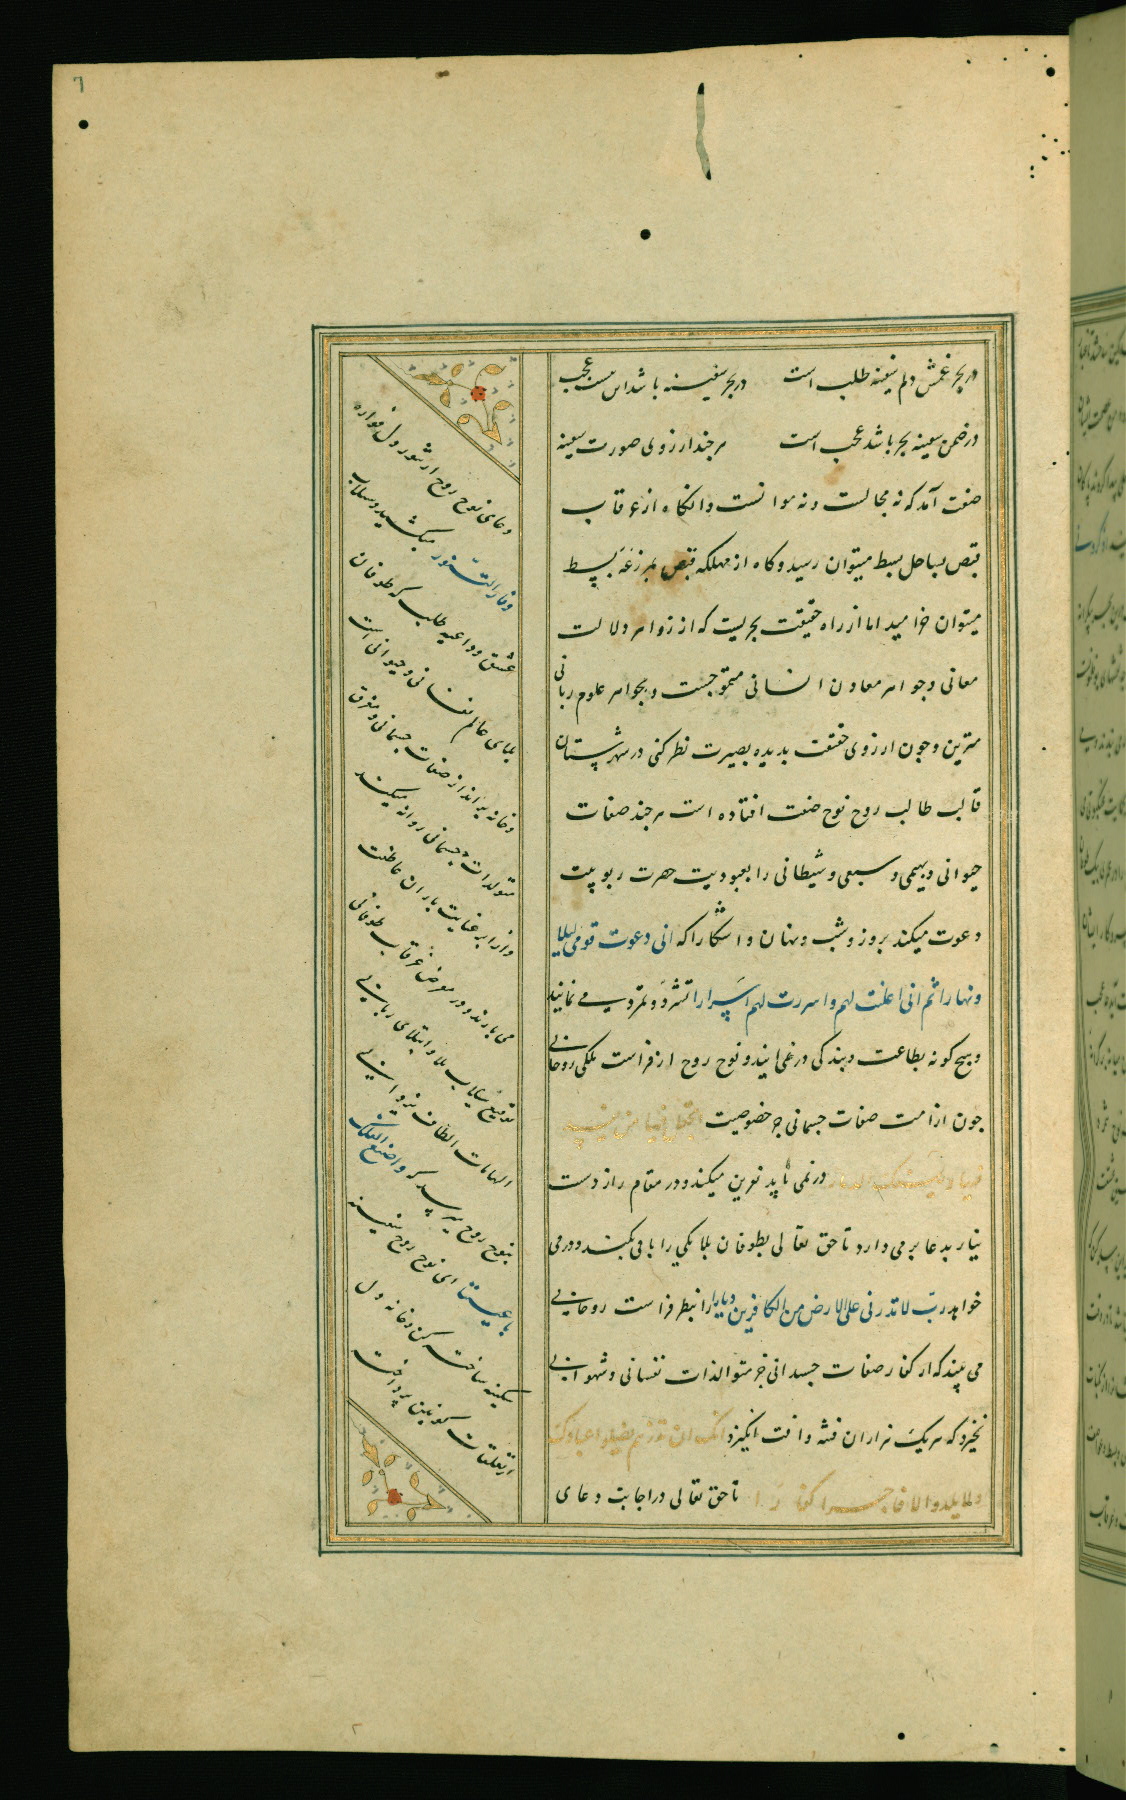 در بحر غمش دلم سفینه طلب است در بحر سفینه باشد اس عجب
در ضمن سفینه بحر باشد عجب است هر چند از روی صورت سفینه
صفت آمد که نه مجالست و نه موانست و انکاه از غرقاب
قبض بساحل بسط میتوان رسید و کاه از مهلکه قبض بسط
میتوان خرامید اما از راه حقیقت بحریست که از زواهر دلالت
معانی و جواهر معادن انسانی متموجست و بجواهر علوم ربانی
مزین و چون از روی حقیقت بدیده بصیرت نظر کنی در شهرستان
قالب طالب روح نوح صفت افتاده است هر چند صفات
حیوانی و بهیمی و سبعی و شیطانی را بعبودیت حضرت ربوبیت
دعوت میکند بروز و شب و نهان و اشکارا که انی دعوت قومی لیلا
ونهارا ثم انی اعلنت لهم واسررت لهم اسرارا تشرد و تمرد می نمایند
و هیچ کونه بطاعت و بندکی در نمی ایند و نوح روح از فراست ملکی روحانی
چون از امت صفات جسمانی جز خصوصیت
در نمی یابد نفرین میکند و در مقام راز دست
نیاز بدعا بر می دارد تا حق تعالی بطوفان بلا یکی را باقی نکند و در می
خواهد رب لا تذرنی علی الارض من الکافرین دیارا را بنظر فراست روحانی
می بیند که از کفار صفات جسدانی جز متوالدات نفسانی و شهوانی
نخیزد که هر یک هزاران فتنه و افت انکیزد انک ان تذرهم یضلوا عبادک
ولا یلدوا الا فاجرا کفارا تا حق تعالی در اجابت دعای
دعای نوح روح از شور دل فواره
وفار التنور میکشید و سیلاب
عشق و داعیه طلب که طوفان
بلای عالم نفسانی و حیوانی است
و خانه برانداز صفات جسمانی و مغرق
متولدات جسمانی روانه میکند
و از ابر عنایت باران عاطفت
می بارند و در معرض غرقاب طوفانی
سیلاب بلا و ابتلای ربانی
الهامات الطاف یزدانی
بنوح روح میرسد که واصنع الفلک
باعیننا ای نوح روح سفینه
سکینه ساخته کن و خانه دل
از تعلقات کونین پرداخته